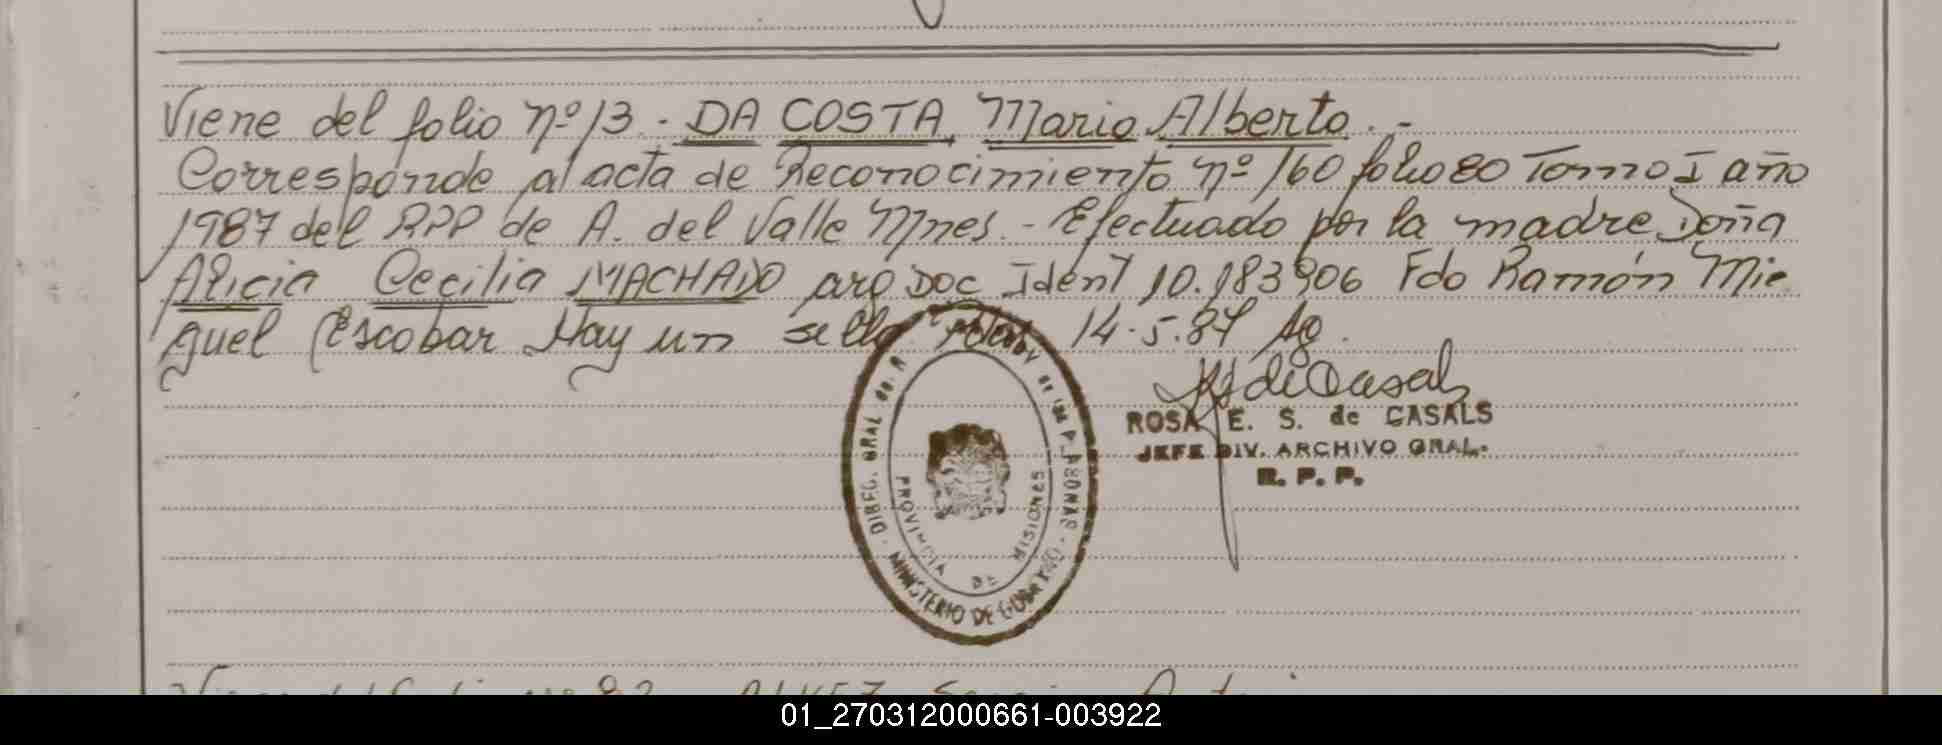 Viene del folio nº 13.- DA COSTA, Mario Alberto.-
Corresponde al acta de Reconocimiento nº 160 folio 80 Tomo I año
1987 del RPP de A. del Valle Mnes.- Efectuado por la madre Doña
Alicia Cecilia MACHADO arg Doc Ident 10.183906 Fdo Ramón Mi
guel Escobar Hay un sello 14.5.87
ROSA E. S. de CASALS
JEFE DIV. ARCHIVO GRAL.
R. P. P.
DIREC. GRAL de las PERSONAS
MINISTERIO DE GOBIERNO
PROVINCIA DE MISIONES
01_270312000661-003922